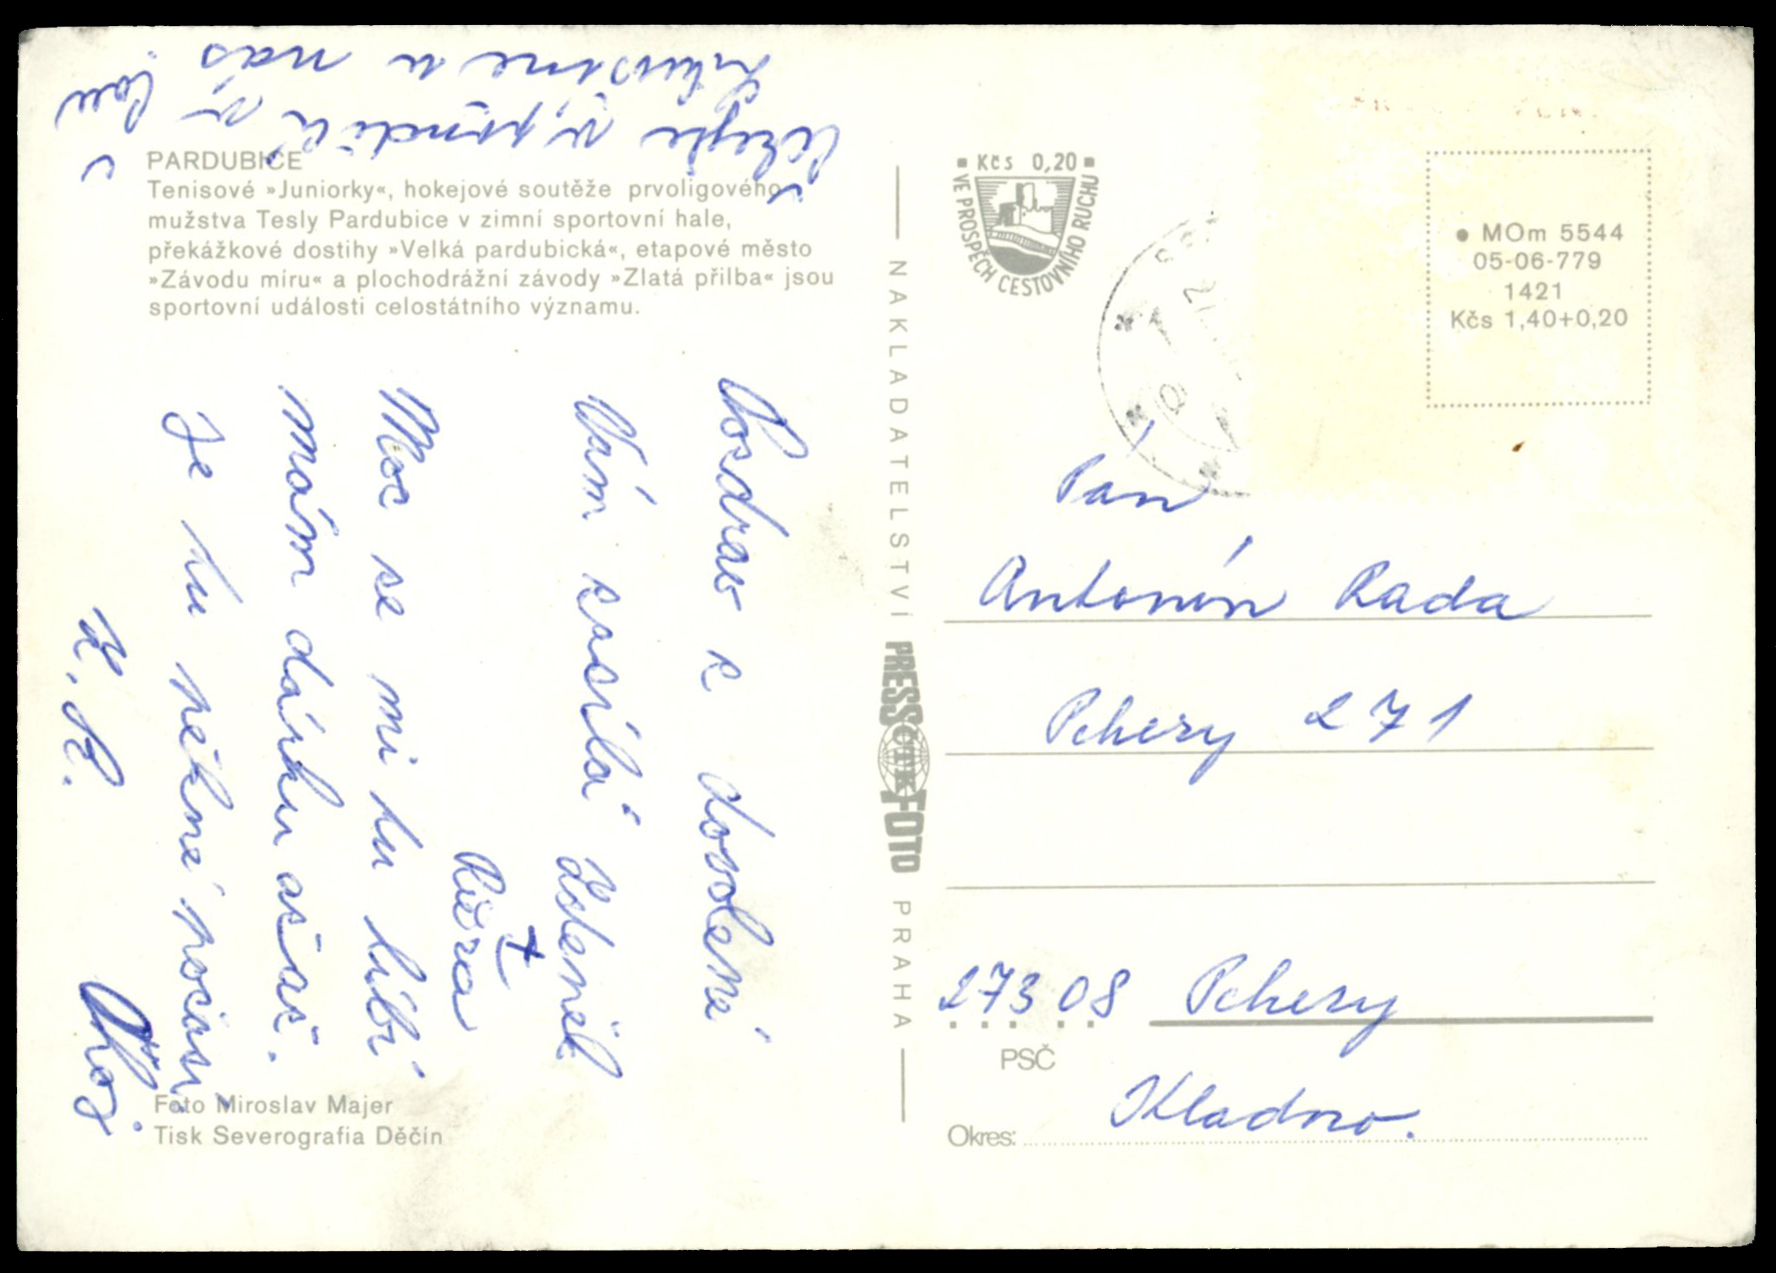 PARDUBICE
Tenisové »Juniorky«, hokejové soutěže prvoligového
mužstva Tesly Pardubice v zimní sportovní hale,
překážkové dostihy »Velká pardubická«, etapové město
»Závodu míru« a plochodrážní závody »Zlatá přilba« jsou
sportovní události celostátního významu.
Pozdrav z dovolené
Vám zasílá Zdeněk
+
Růža
Moc se mi tu líbí
mám dárku
Je tu pěkné počasí,
Z. R.
Ahoj.
v pondělí v
u nás
Foto Miroslav Majer
Tisk Severografia Děčín
NAKLADATELSTVÍ PRESSFOTO PRAHA
ČTK
Kčs 0,20
VE PROSPĚCH CESTOVNÍHO RUCHU
MOm 5544
05-06-779
1421
Kčs 1,40+0,20
Pan
Antonín Rada
Pchery 271
273 08 Pchery
PSČ
Okres: Kladno.